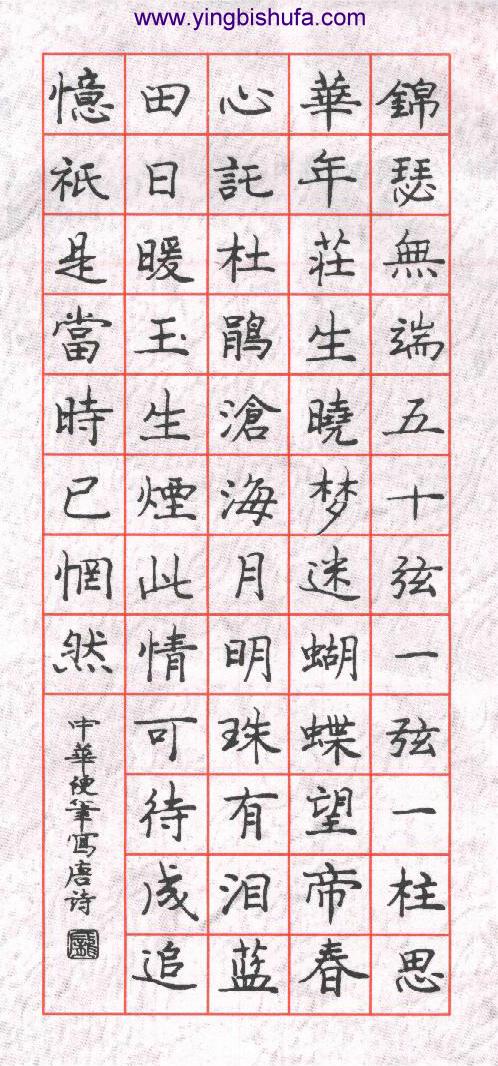 www.yingbishufa.com
錦瑟無端五十弦一弦一柱思
華年莊生曉梦迷蝴蝶望帝春
心託杜鵑滄海月明珠有泪蓝
田日暖玉生煙此情可待成追
憶祇是當時已惘然
中華硬筆寫唐诗